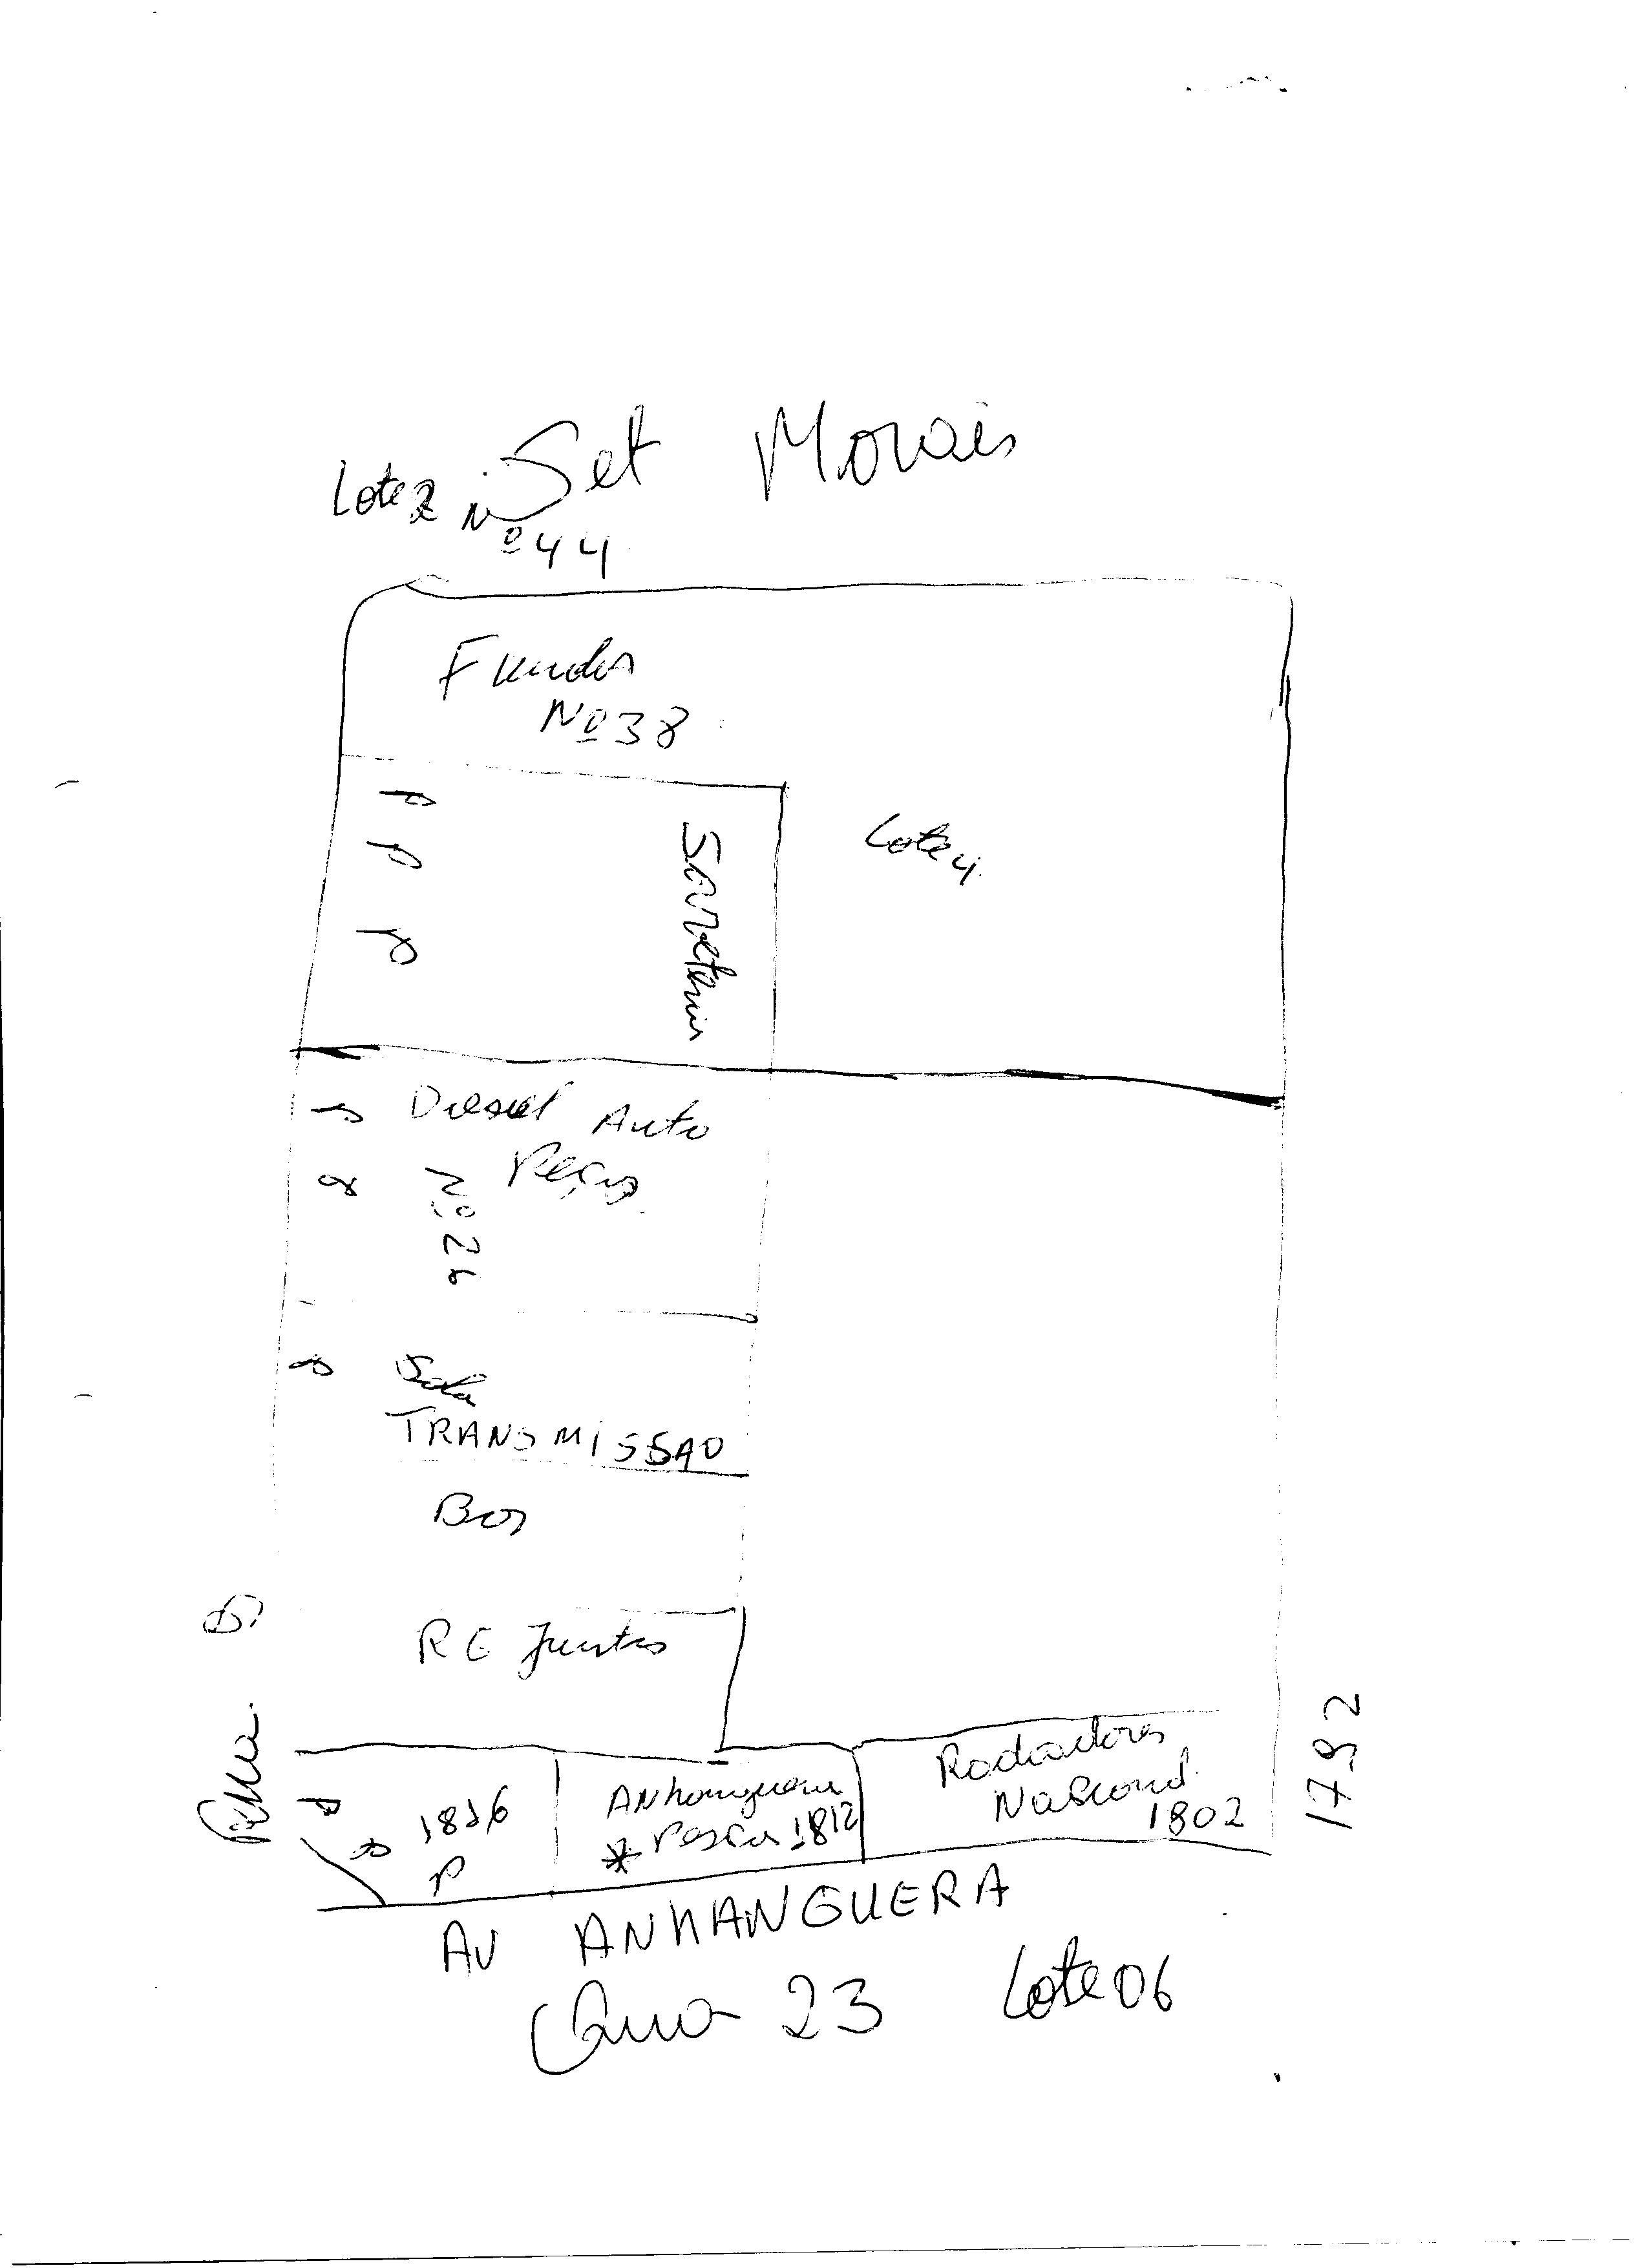 Set Morais
Lote 2 Nº 44
Fundos
Nº 38
P
P
P
Sorveteria
Lote 4
Diesel Auto
Peças
Nº 26
Sala
TRANSMISSAO
Box
RG Juntas
Rua
1816
P
Anhanguera
* Pesca 1812
Radiadores
Nacional
1802
1792
AV ANHANGUERA
Qua 23 Lote 06